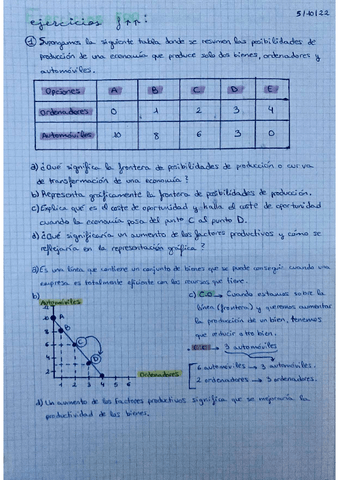 ejercicios fpp:
5/10/22
① Supongamos la siguiente tabla donde se resumen las posibilidades de
producción de una economía que produce solo dos bienes, ordenadores y
automóviles.
Opciones A B C D E
Ordenadores 0 1 2 3 4
Automóviles 10 8 6 3 0
a) ¿Qué significa la frontera de posibilidades de producción o curva
de transformación de una economía?
b) Representa gráficamente la frontera de posibilidades de producción.
c) Explica qué es el coste de oportunidad y halla el coste de oportunidad
cuando la economía pasa del punto C al punto D.
d) ¿Qué significaría un aumento de los factores productivos y cómo se
reflejaría en la representación gráfica?
a) Es una línea que contiene un conjunto de bienes que se puede conseguir cuando una
empresa es totalmente eficiente con los recursos que tiene.
b)
Automóviles
10 A
B
C
D
1 2 3 4 5 6
Ordenadores
c) C.O → Cuando estamos sobre la
línea (frontera) y queremos aumentar
la producción de un bien, tenemos
que reducir otro bien.
→ 3 automóviles
6 automóviles → 3 automóviles.
2 ordenadores → 3 ordenadores.
d) Un aumento de los factores productivos significa que se mejoraría la
productividad de los bienes.